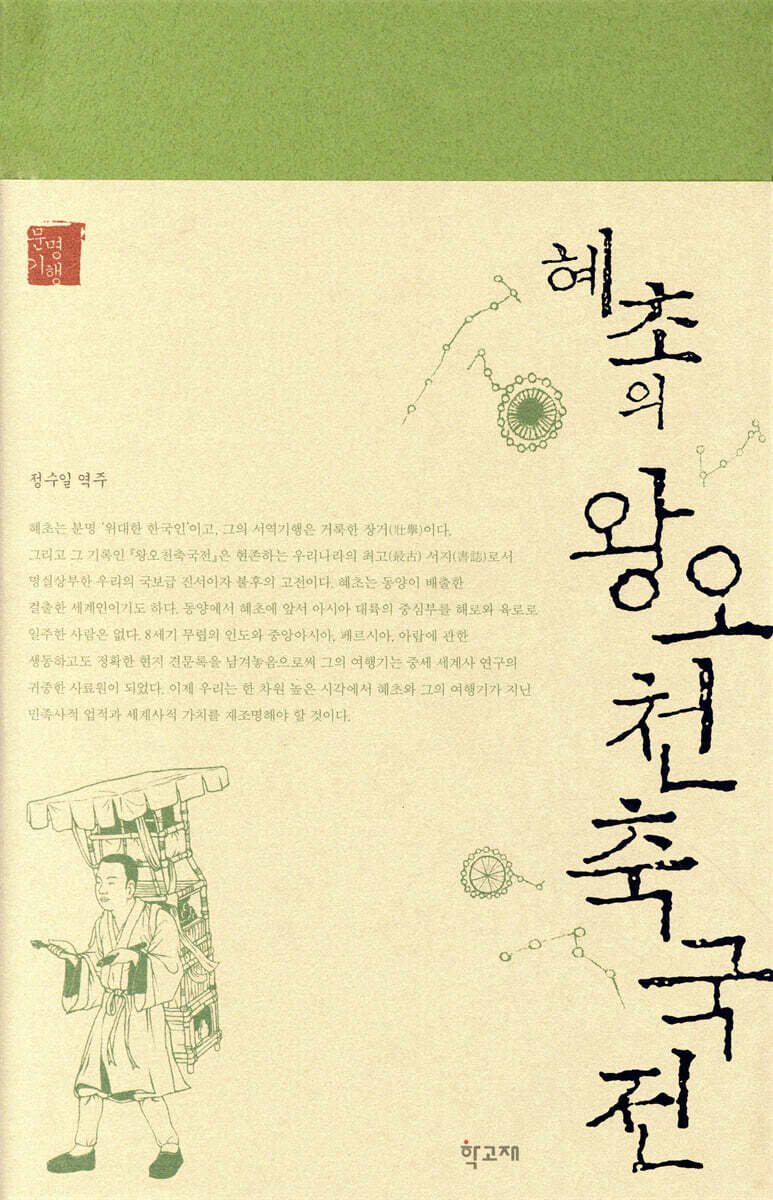 문명
기행
혜초의
왕오천축국전
정수일 역주
혜초는 분명 '위대한 한국인'이고, 그의 서역기행은 거룩한 장거(壯擧)이다.
그리고 그 기록인 『왕오천축국전』은 현존하는 우리나라의 최고(最古) 서지(書誌)로서
명실상부한 우리의 국보급 진서이자 불후의 고전이다. 혜초는 동양이 배출한
걸출한 세계인이기도 하다. 동양에서 혜초에 앞서 아시아 대륙의 중심부를 해로와 육로로
일주한 사람은 없다. 8세기 무렵의 인도와 중앙아시아, 페르시아, 아랍에 관한
생동하고도 정확한 현지 견문록을 남겨놓음으로써 그의 여행기는 중세 세계사 연구의
귀중한 사료원이 되었다. 이제 우리는 한 차원 높은 시각에서 혜초와 그의 여행기가 지닌
민족사적 업적과 세계사적 가치를 재조명해야 할 것이다.
학고재